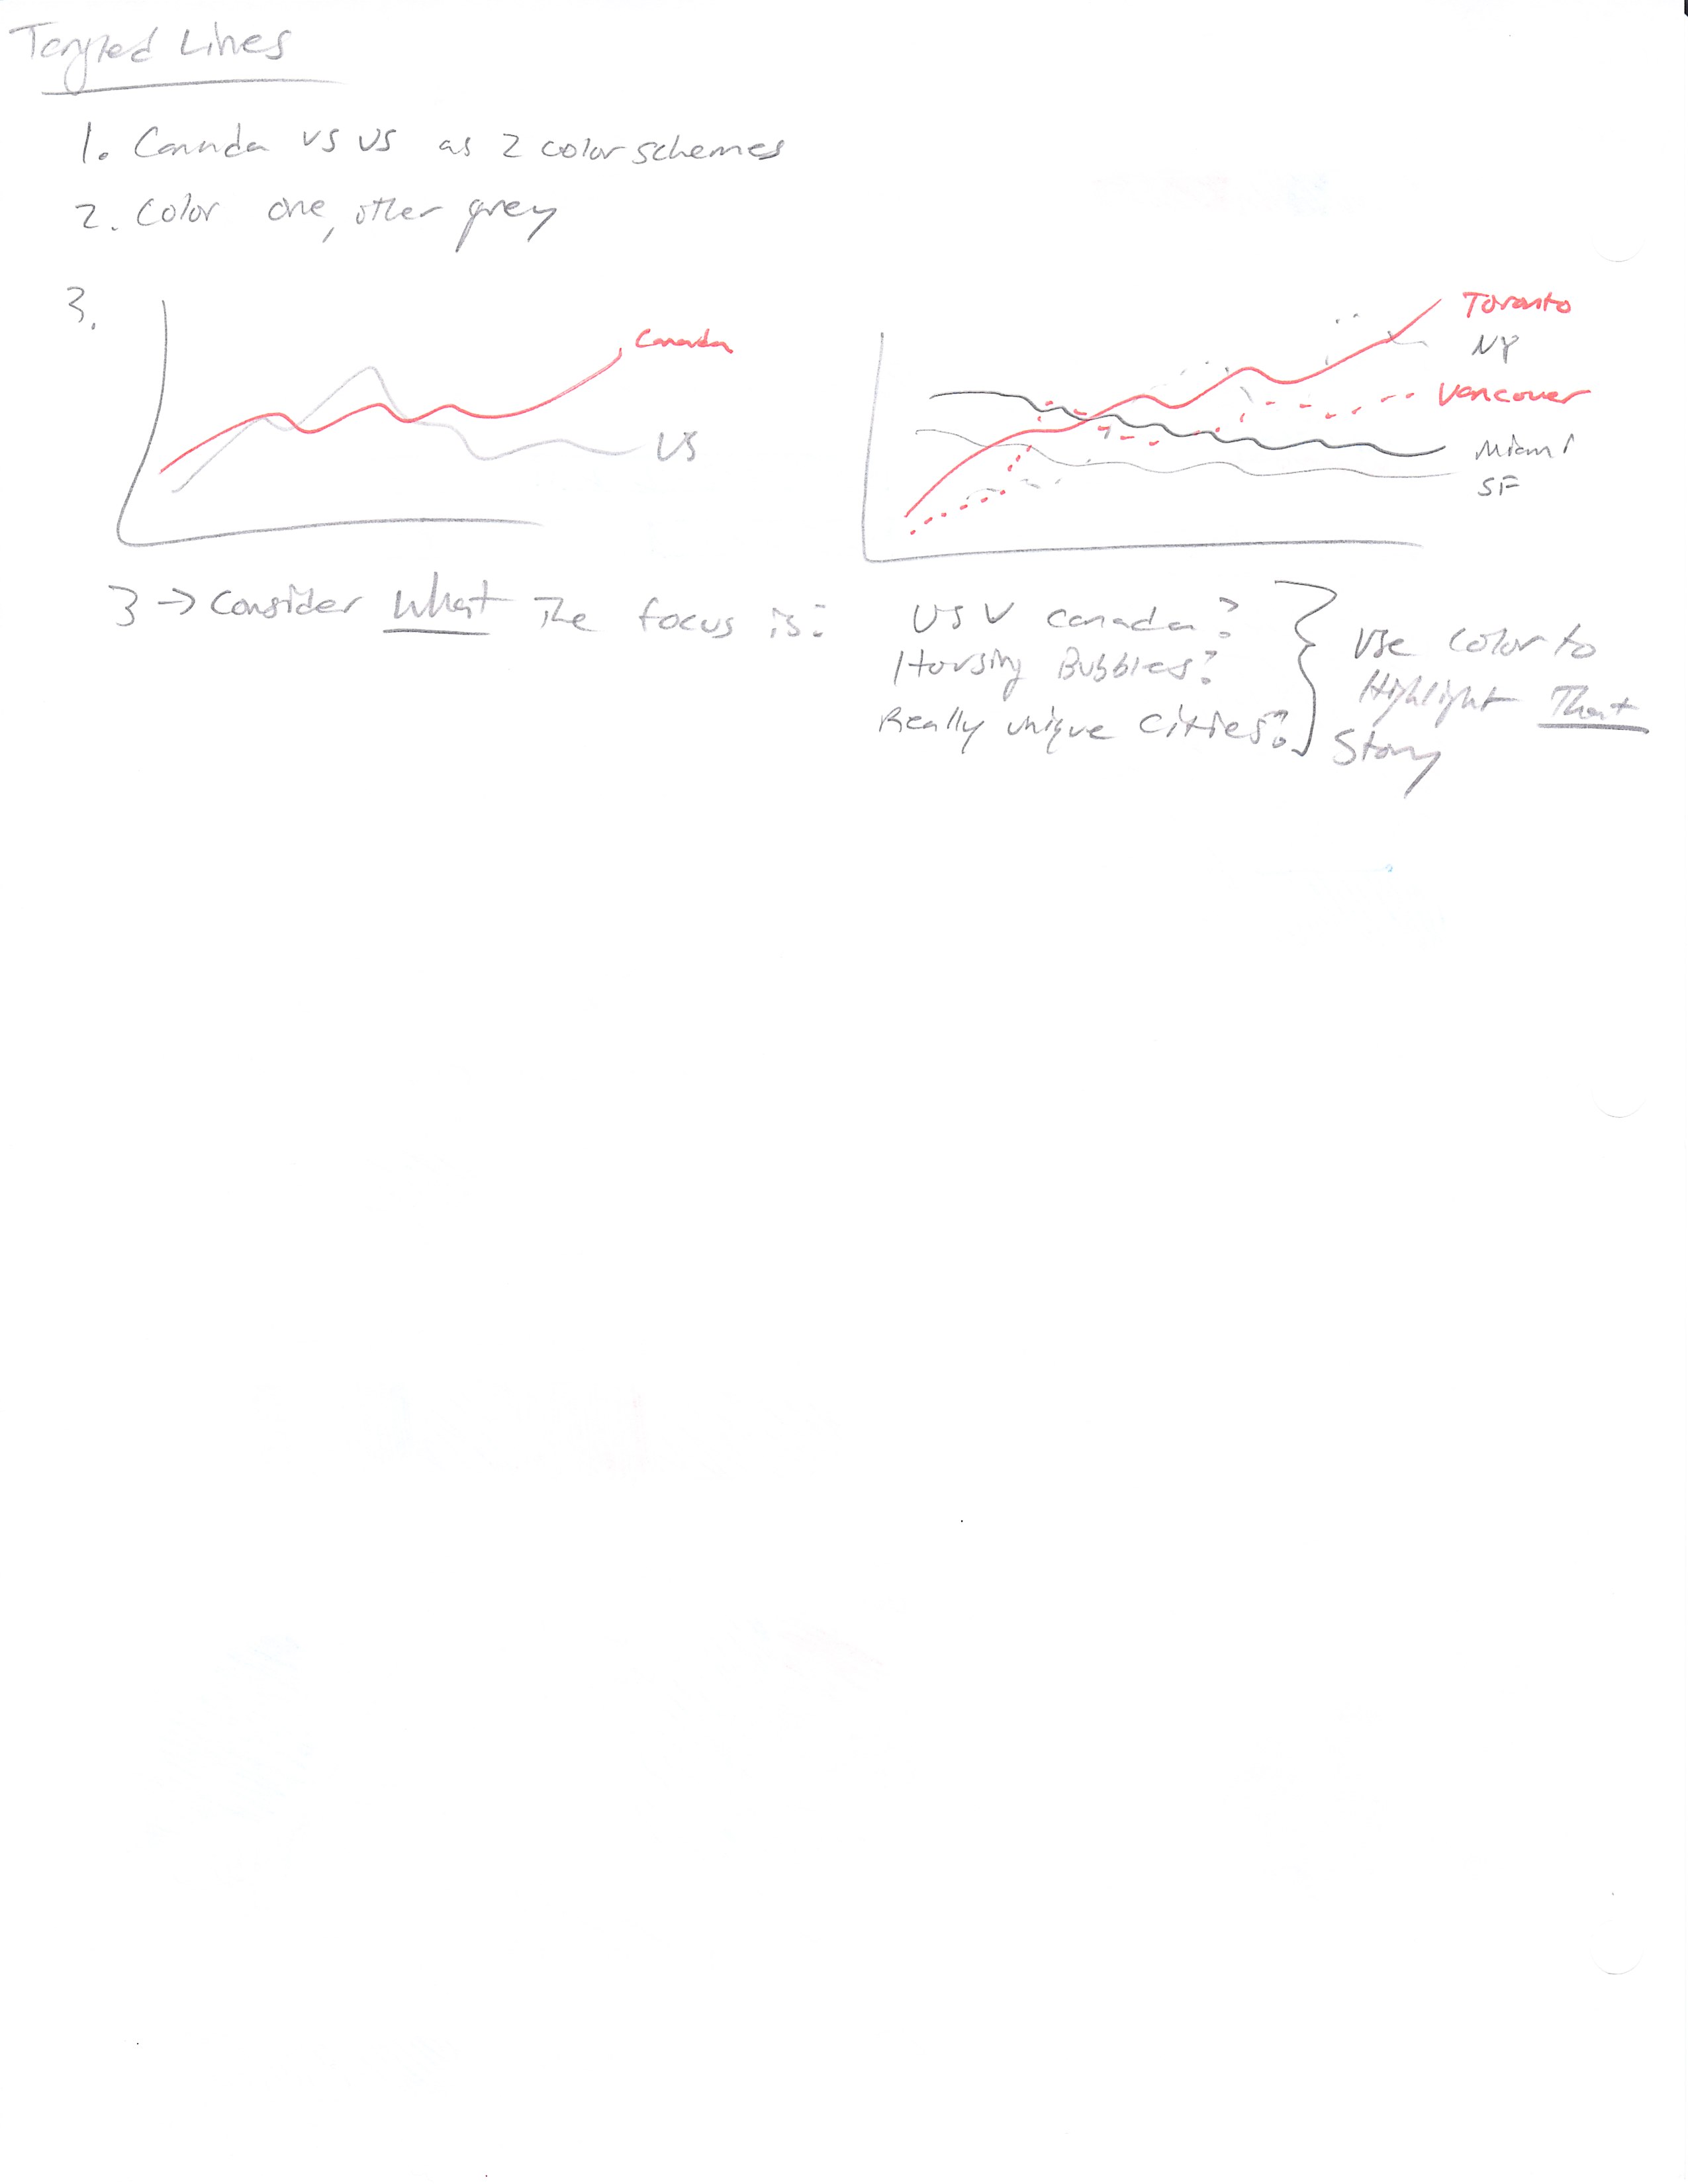 Tangled Lines
1. Canada vs US as 2 color schemes
2. Color one, other grey
3.
Canada
US
Toronto
NY
Vancouver
Miami
SF
3 → Consider What The focus is:
US V Canada?
Housing Bubbles?
Really unique cities?
Use color to
Highlight That
Story